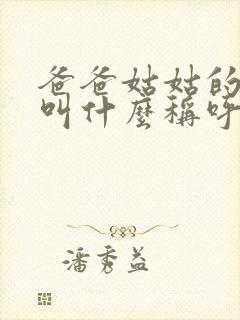 爸爸姑姑的
叫什麼稱呼
潘秀益